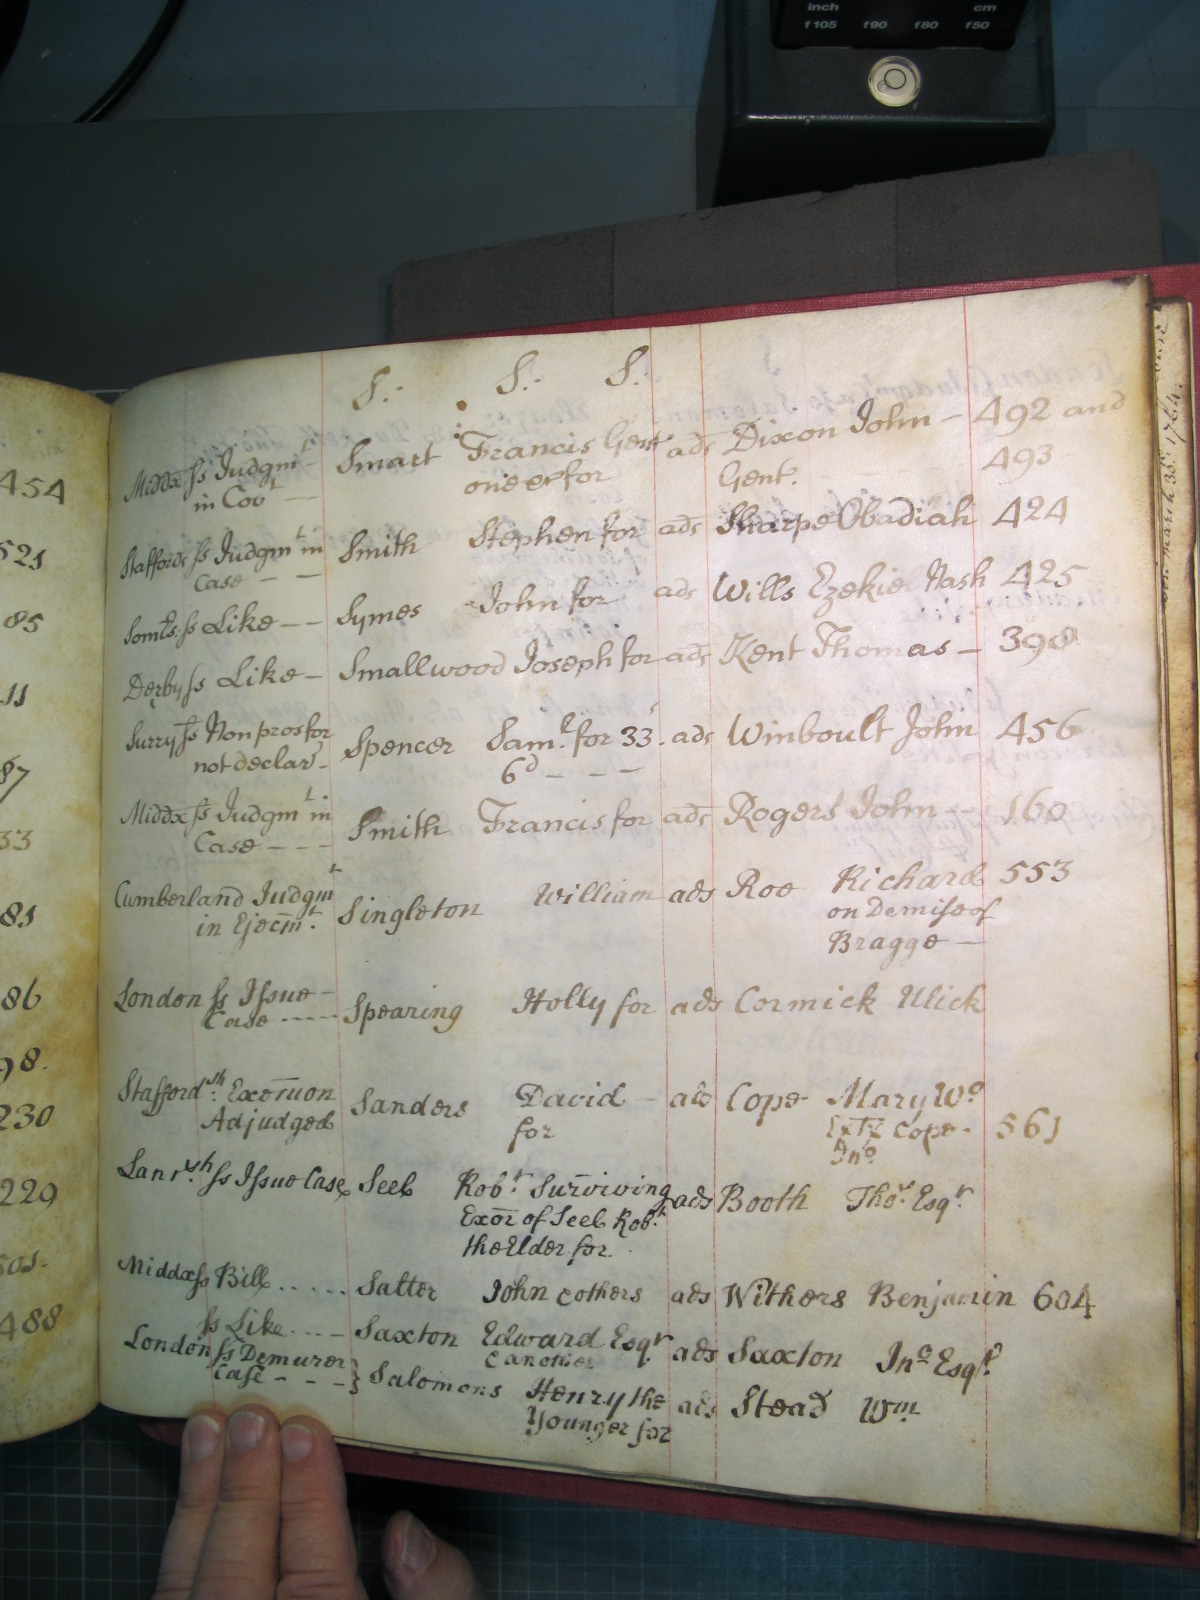 inch cm
f105 f90 f80 f50
S:- S:- S:
Middx ſs Judgmt Smart Francis Gent ads Dixon John — 492 and
in Covt — one &c for Gent. 493
Staffords ſs Judgmt in Smith Stephen for ads Sharpe Obadiah 424
Case — —
Somts. ſs Like — — Symes John for ads Wills Ezekiel Nash 425
Derby ſs Like — Smallwood Joseph for ads Kent Thomas — 398
Surry ſs Non pros for Spencer Saml. for 33s. ads Winboult John 456
not declar̄ — 6d — — —
Middx ſs Judgmt in Smith Francis for ads Rogers John — 160
Case — — —
Cumberland Judgmt Singleton William ads Roe Richard 553
in Ejecm̄t. on Demise of
Bragge —
London ſs Issue — Spearing Holly for ads Cormick Ulick
Case
Staffordsh. Sanders David — ads Cope Mary Wo
Adjudged for Extx Cope - 561
Jno.
Ss Issue Case Seel Robt. Surviving ads Booth Thos. Esqr.
Exōr of Seel Robt.
the Elder for.
Middx ſs Bill ..... Salter John & others ads Withers Benjamin 604
ſs Like .... Saxton Edward Esqr. ads Saxton Jno. Esqr.
& another
London ſs Demurer Salomons Henry the ads Stead Wm
Case - - - } Younger for
454
521
85
11
87
33
81
86
98.
230
229
501.
488
1764.